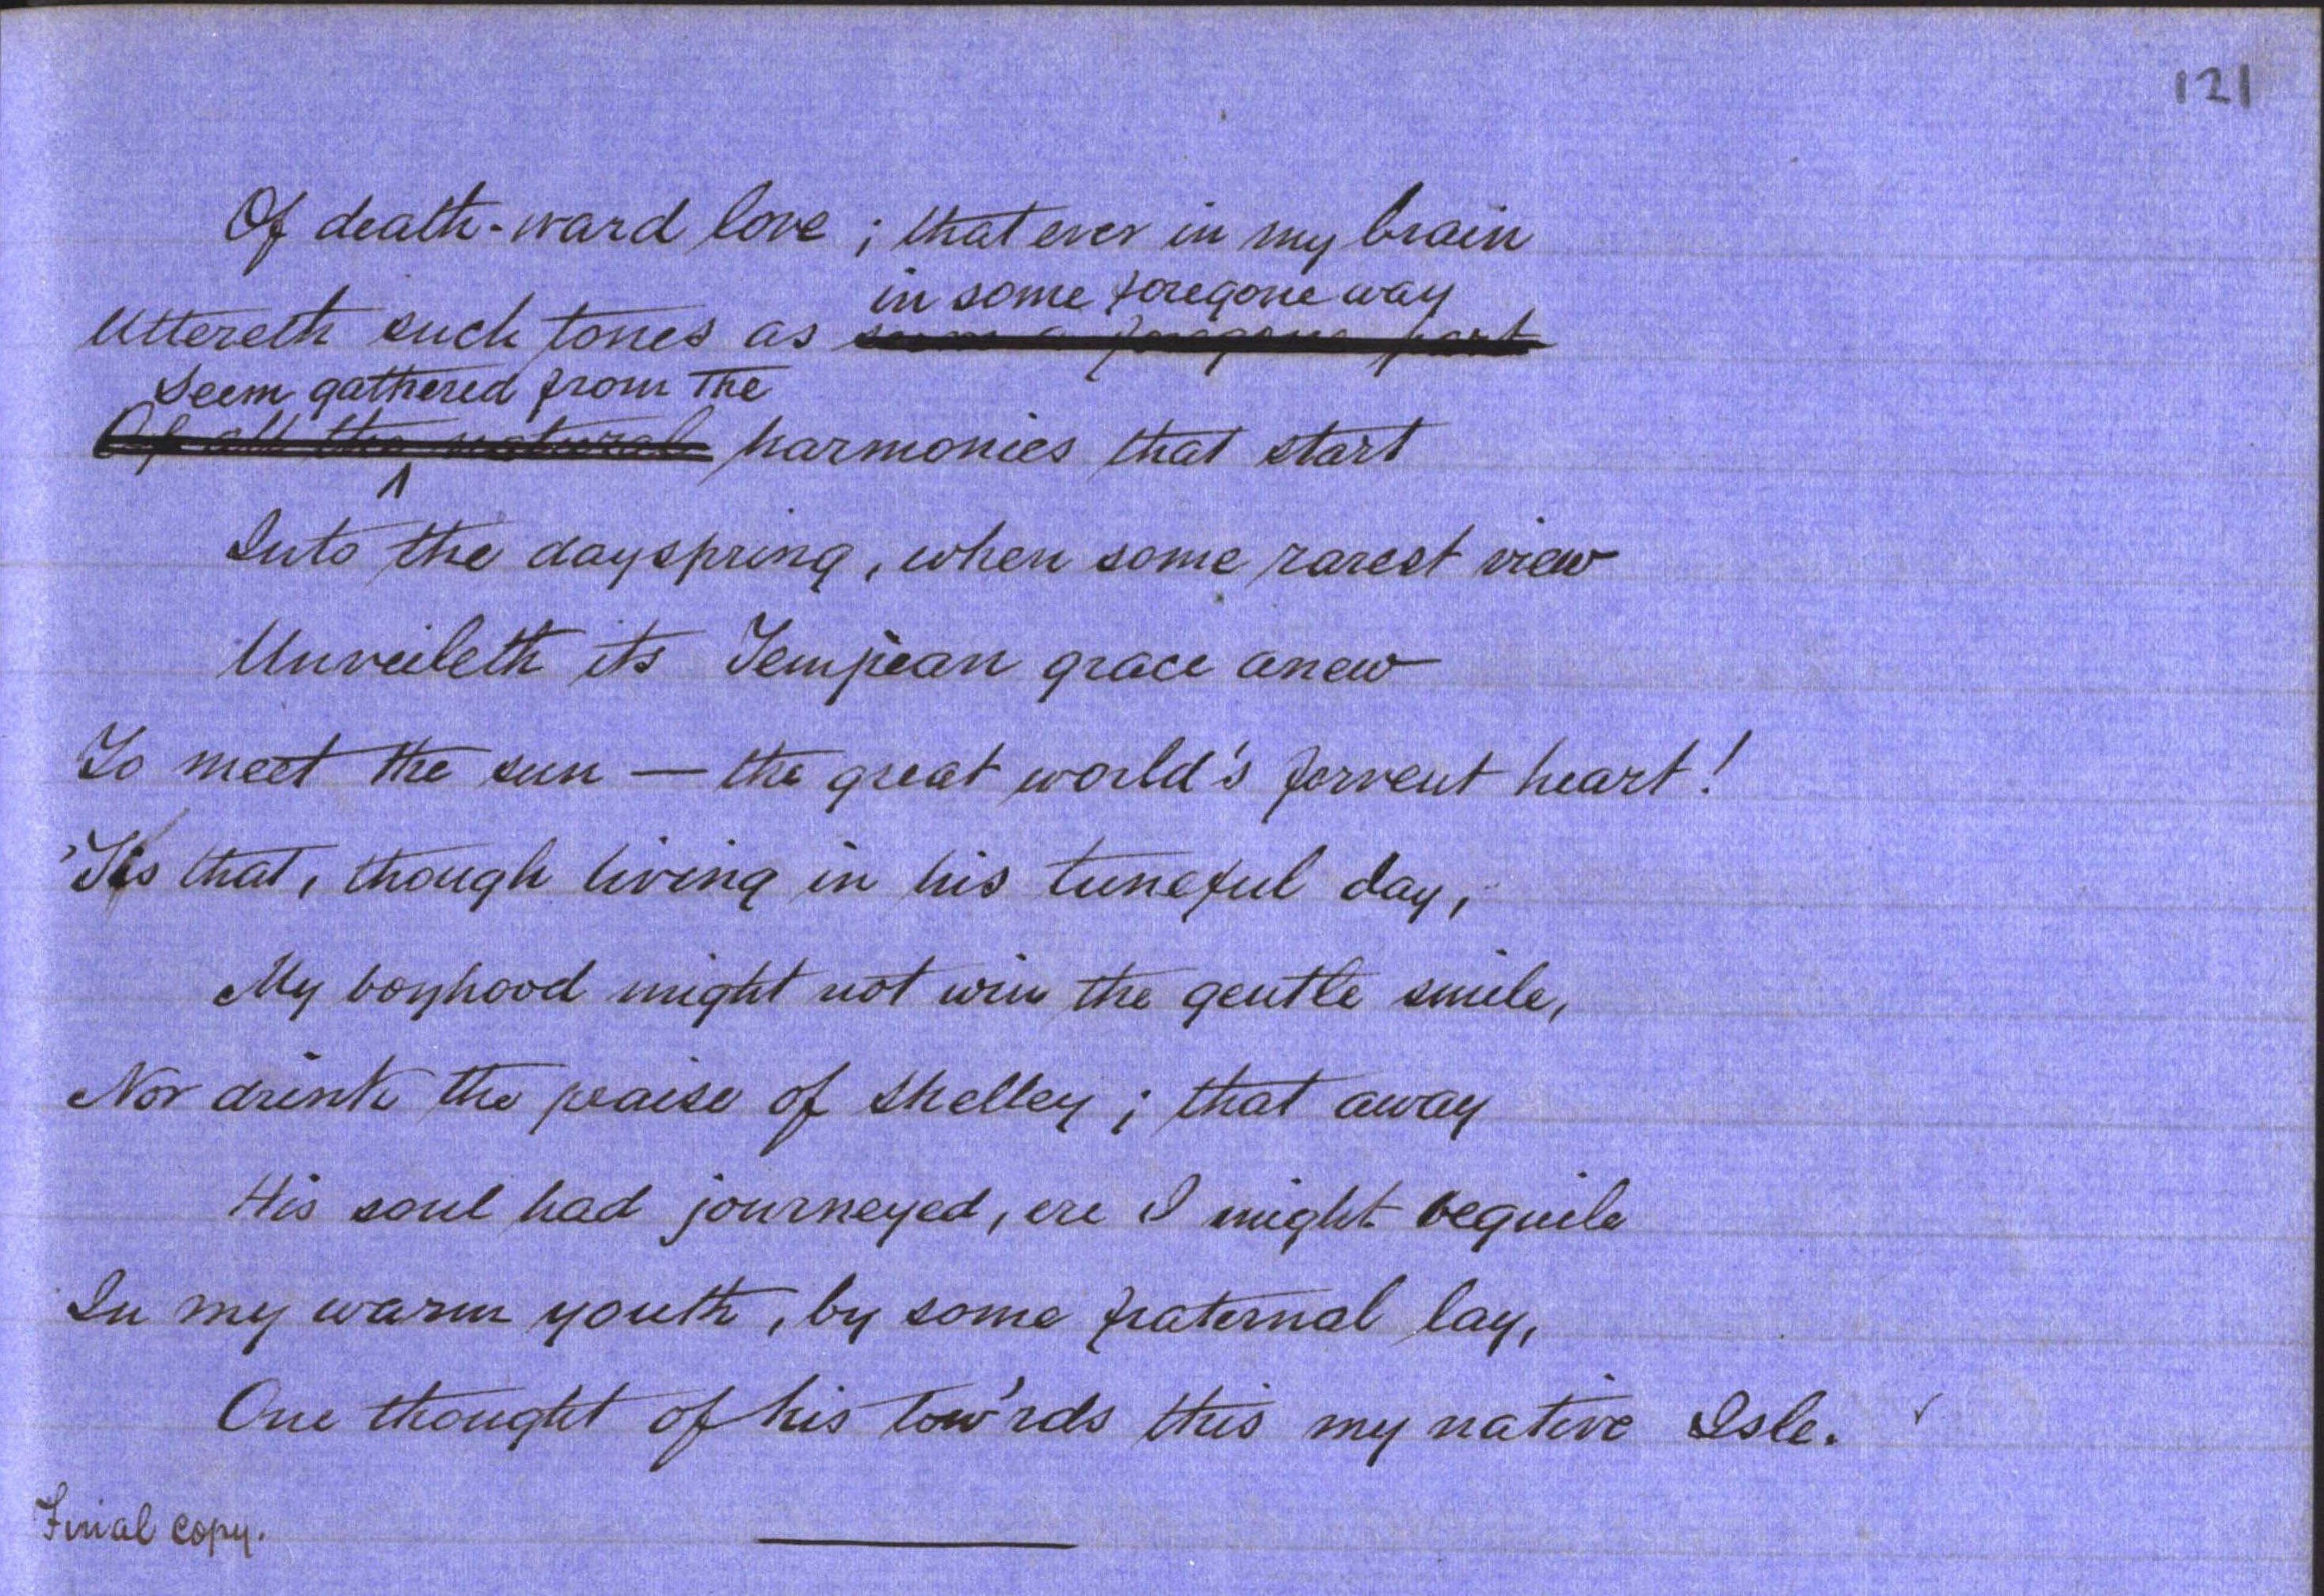 121
Of death-ward love ; that ever in my brain
in some foregone way
Uttereth such tones as seem a foregone part
Seem gathered from the
Of all the natural harmonies that start
Into the dayspring, when some rarest view
Unveileth its Tempèan grace anew
To meet the sun — the great world's fervent heart!
'Tis that, though living in his tuneful day,
My boyhood might not win the gentle smile,
Nor drink the praise of Shelley ; that away
His soul had journeyed, ere I might beguile
In my warm youth, by some fraternal lay,
One thought of his tow'rds this my native Isle.
Final copy.